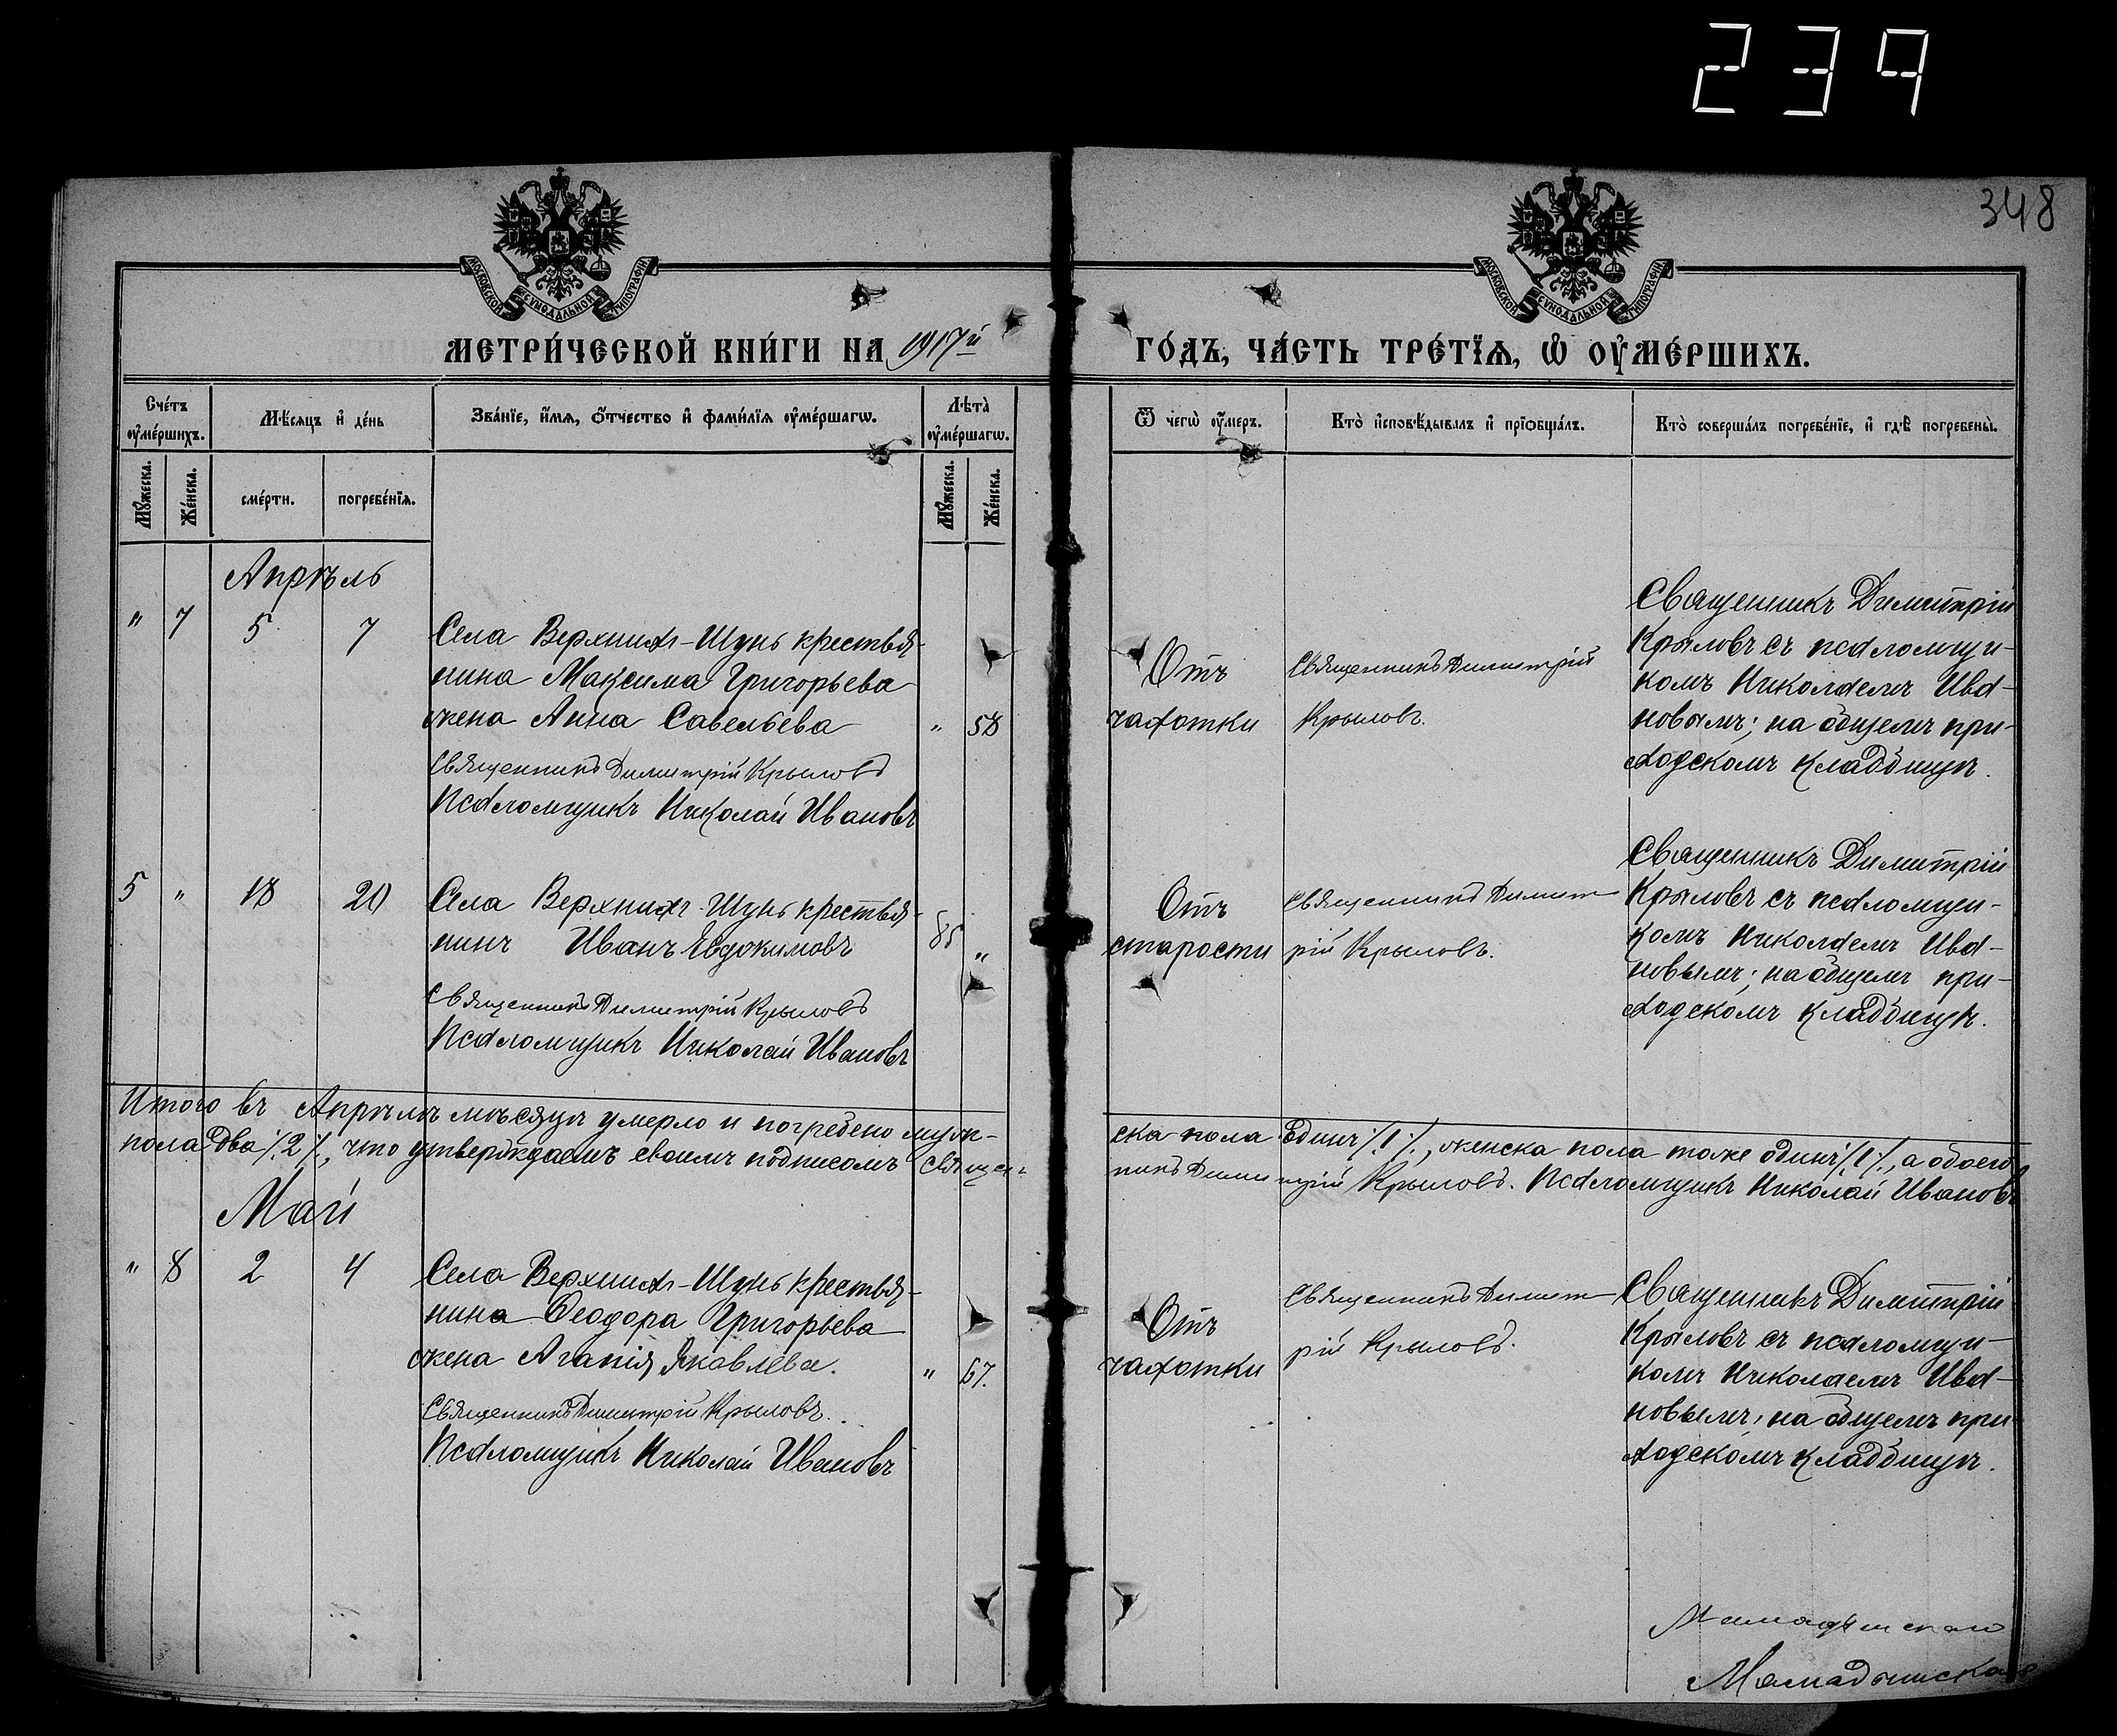 239
348
МОСКОВСКОЙ СѴНОДАЛЬНОЙ ТИПОГРАФІИ
МОСКОВСКОЙ СѴНОДАЛЬНОЙ ТИПОГРАФІИ
МЕТРИ́ЧЕСКОЙ КНИ́ГИ НА 1917й ГО́ДЪ, ЧА́СТЬ ТРЕ́ТЇѦ, Ѡ҆ ОУ҆МЕ́РШИХЪ.
Сче́тъ оу҆ме́ршихъ.
Мѣ́сяцъ и҆ де́нь
Зва́нїе, и҆́мѧ, ѻ҆́тчество и҆ фами́лїѧ оу҆ме́ршагѡ.
Лѣ̀та̀ оу҆ме́ршагѡ.
Ѿ чегѡ̀ оу҆́меръ.
Кто̀ и҆сповѣ́дывалъ и҆ прїѡбща́лъ.
Кто̀ соверша́лъ погребе́нїе, и҆ гдѣ̀ погребены̀.
Мꙋ́жеска.
Же́нска.
сме́рти.
погребе́нїѧ.
Мꙋ́жеска.
Же́нска.
Апрѣль
" 7 5 7
Села Верхнихъ-Шунь крестья-
нина Максима Григорьева
жена Анна Савельева " 58
Священникъ Димитрій Крыловъ
Псаломщикъ Николай Ивановъ
Отъ
чахотки
Священникъ Димитрій
Крыловъ.
Священникъ Димитрій
Крыловъ съ псаломщи-
комъ Николаемъ Ива-
новымъ; на общемъ при-
ходскомъ кладбищѣ.
5 " 18 20
Села Верхнихъ-Шунь крестья-
нинъ Иванъ Евдокимовъ 85 "
Священникъ Димитрій Крыловъ
Псаломщикъ Николай Ивановъ
Отъ
старости
Священникъ Димит
рій Крыловъ.
Священникъ Димитрій
Крыловъ съ псаломщи-
комъ Николаемъ Ива-
новымъ; на общемъ при-
ходскомъ кладбищѣ.
Итого въ Апрѣлѣ мѣсяцѣ умерло и погребено муж-ска пола Единъ /.1./, женска пола тоже одинъ /.1./, а обоего
пола два /.2./, что утверждаемъ своимъ подписомъ Священ-никъ Димитрій Крыловъ. Псаломщикъ Николай Ивановъ
Май
" 8 2 4
Села Верхнихъ-Шунь крестья-
нина Ѳеодора Григорьева
жена Агапія Яковлева. " 67.
Священникъ Димитрій Крыловъ.
Псаломщикъ Николай Ивановъ
Отъ
чахотки
Священникъ Димит
рій Крыловъ.
Священникъ Димитрій
Крыловъ съ псаломщи-
комъ Николаемъ Ива-
новымъ, на общемъ при
ходскомъ кладбищѣ.
Мамадышскаго
Мамадышска